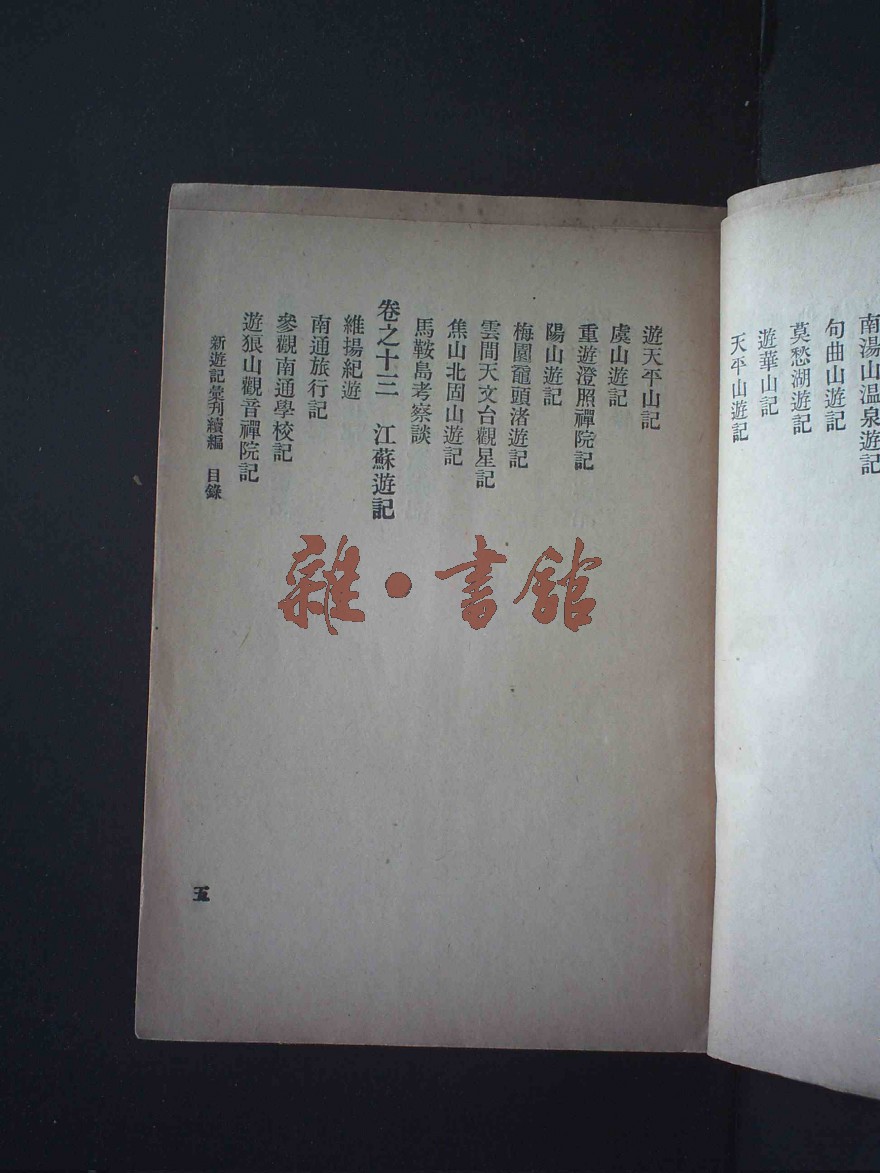 南湯山温泉遊記
句曲山遊記
莫愁湖遊記
遊華山記
天平山遊記
遊天平山記
虞山遊記
重遊澄照禪院記
陽山遊記
梅園黿頭渚遊記
雲間天文台觀星記
焦山北固山遊記
馬鞍島考察談
卷之十三 江蘇遊記
維揚紀遊
南通旅行記
參觀南通學校記
遊狼山觀音禪院記
新遊記彙刋續編 目錄
五
雜·書館